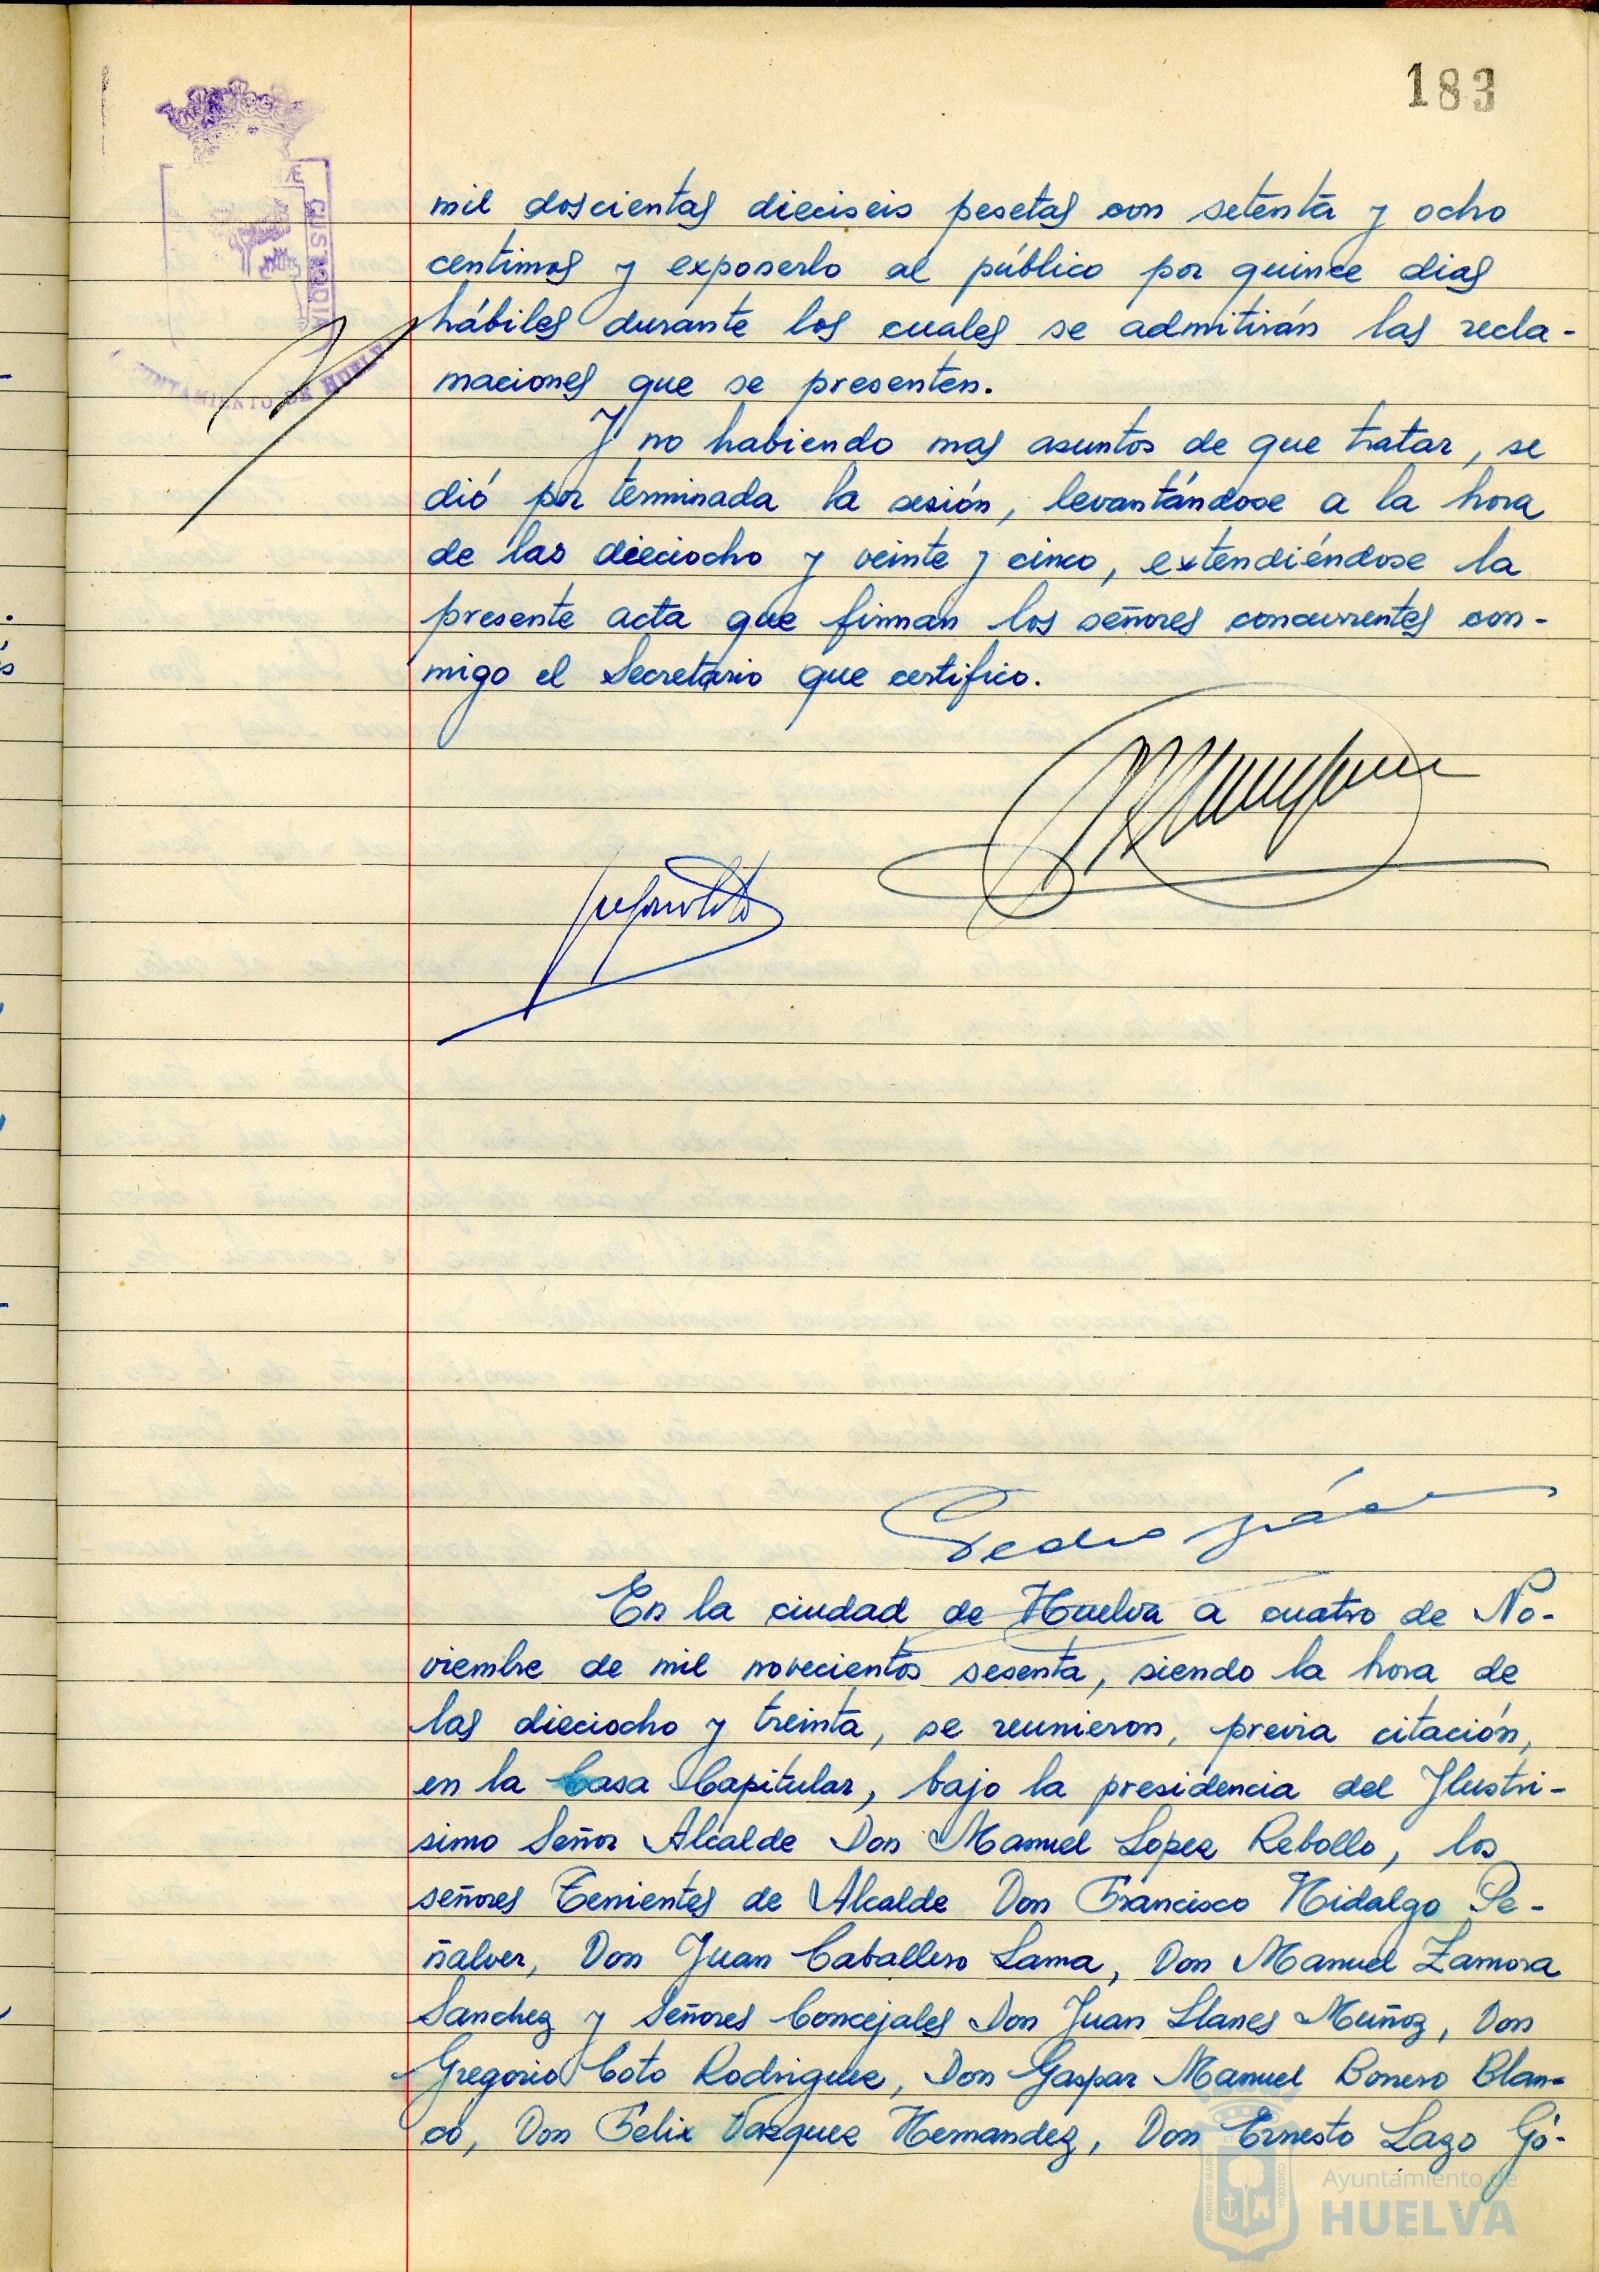 183
Æ CUSTODIA
UNTAMIENTO DE HUELV
mil doscientas dieciseis pesetas con setenta y ocho
centimos y exponerlo al público por quince dias
hábiles durante los cuales se admitirán las recla-
maciones que se presenten.
Y no habiendo mas asuntos de que tratar, se
dió por terminada la sesión, levantándose a la hora
de las dieciocho y veinte y cinco, extendiéndose la
presente acta que firman los señores concurrentes con-
migo el Secretario que certifico.
Pedro
En la ciudad de Huelva a cuatro de No-
viembre de mil novecientos sesenta, siendo la hora de
las dieciocho y treinta, se reunieron, previa citación,
en la Casa Capitular, bajo la presidencia del Ilustri-
simo Señor Alcalde Don Manuel Lopez Rebollo, los
señores Tenientes de Alcalde Don Francisco Hidalgo Pe-
ñalver, Don Juan Caballero Lama, Don Manuel Zamora
Sanchez y Señores Concejales Don Juan Llanes Muñoz, Don
Gregorio Coto Rodriguez, Don Gaspar Manuel Borrero Blan-
co, Don Felix Vazquez Hernandez, Don Ernesto Lazo Gó-
Ayuntamiento de
HUELVA